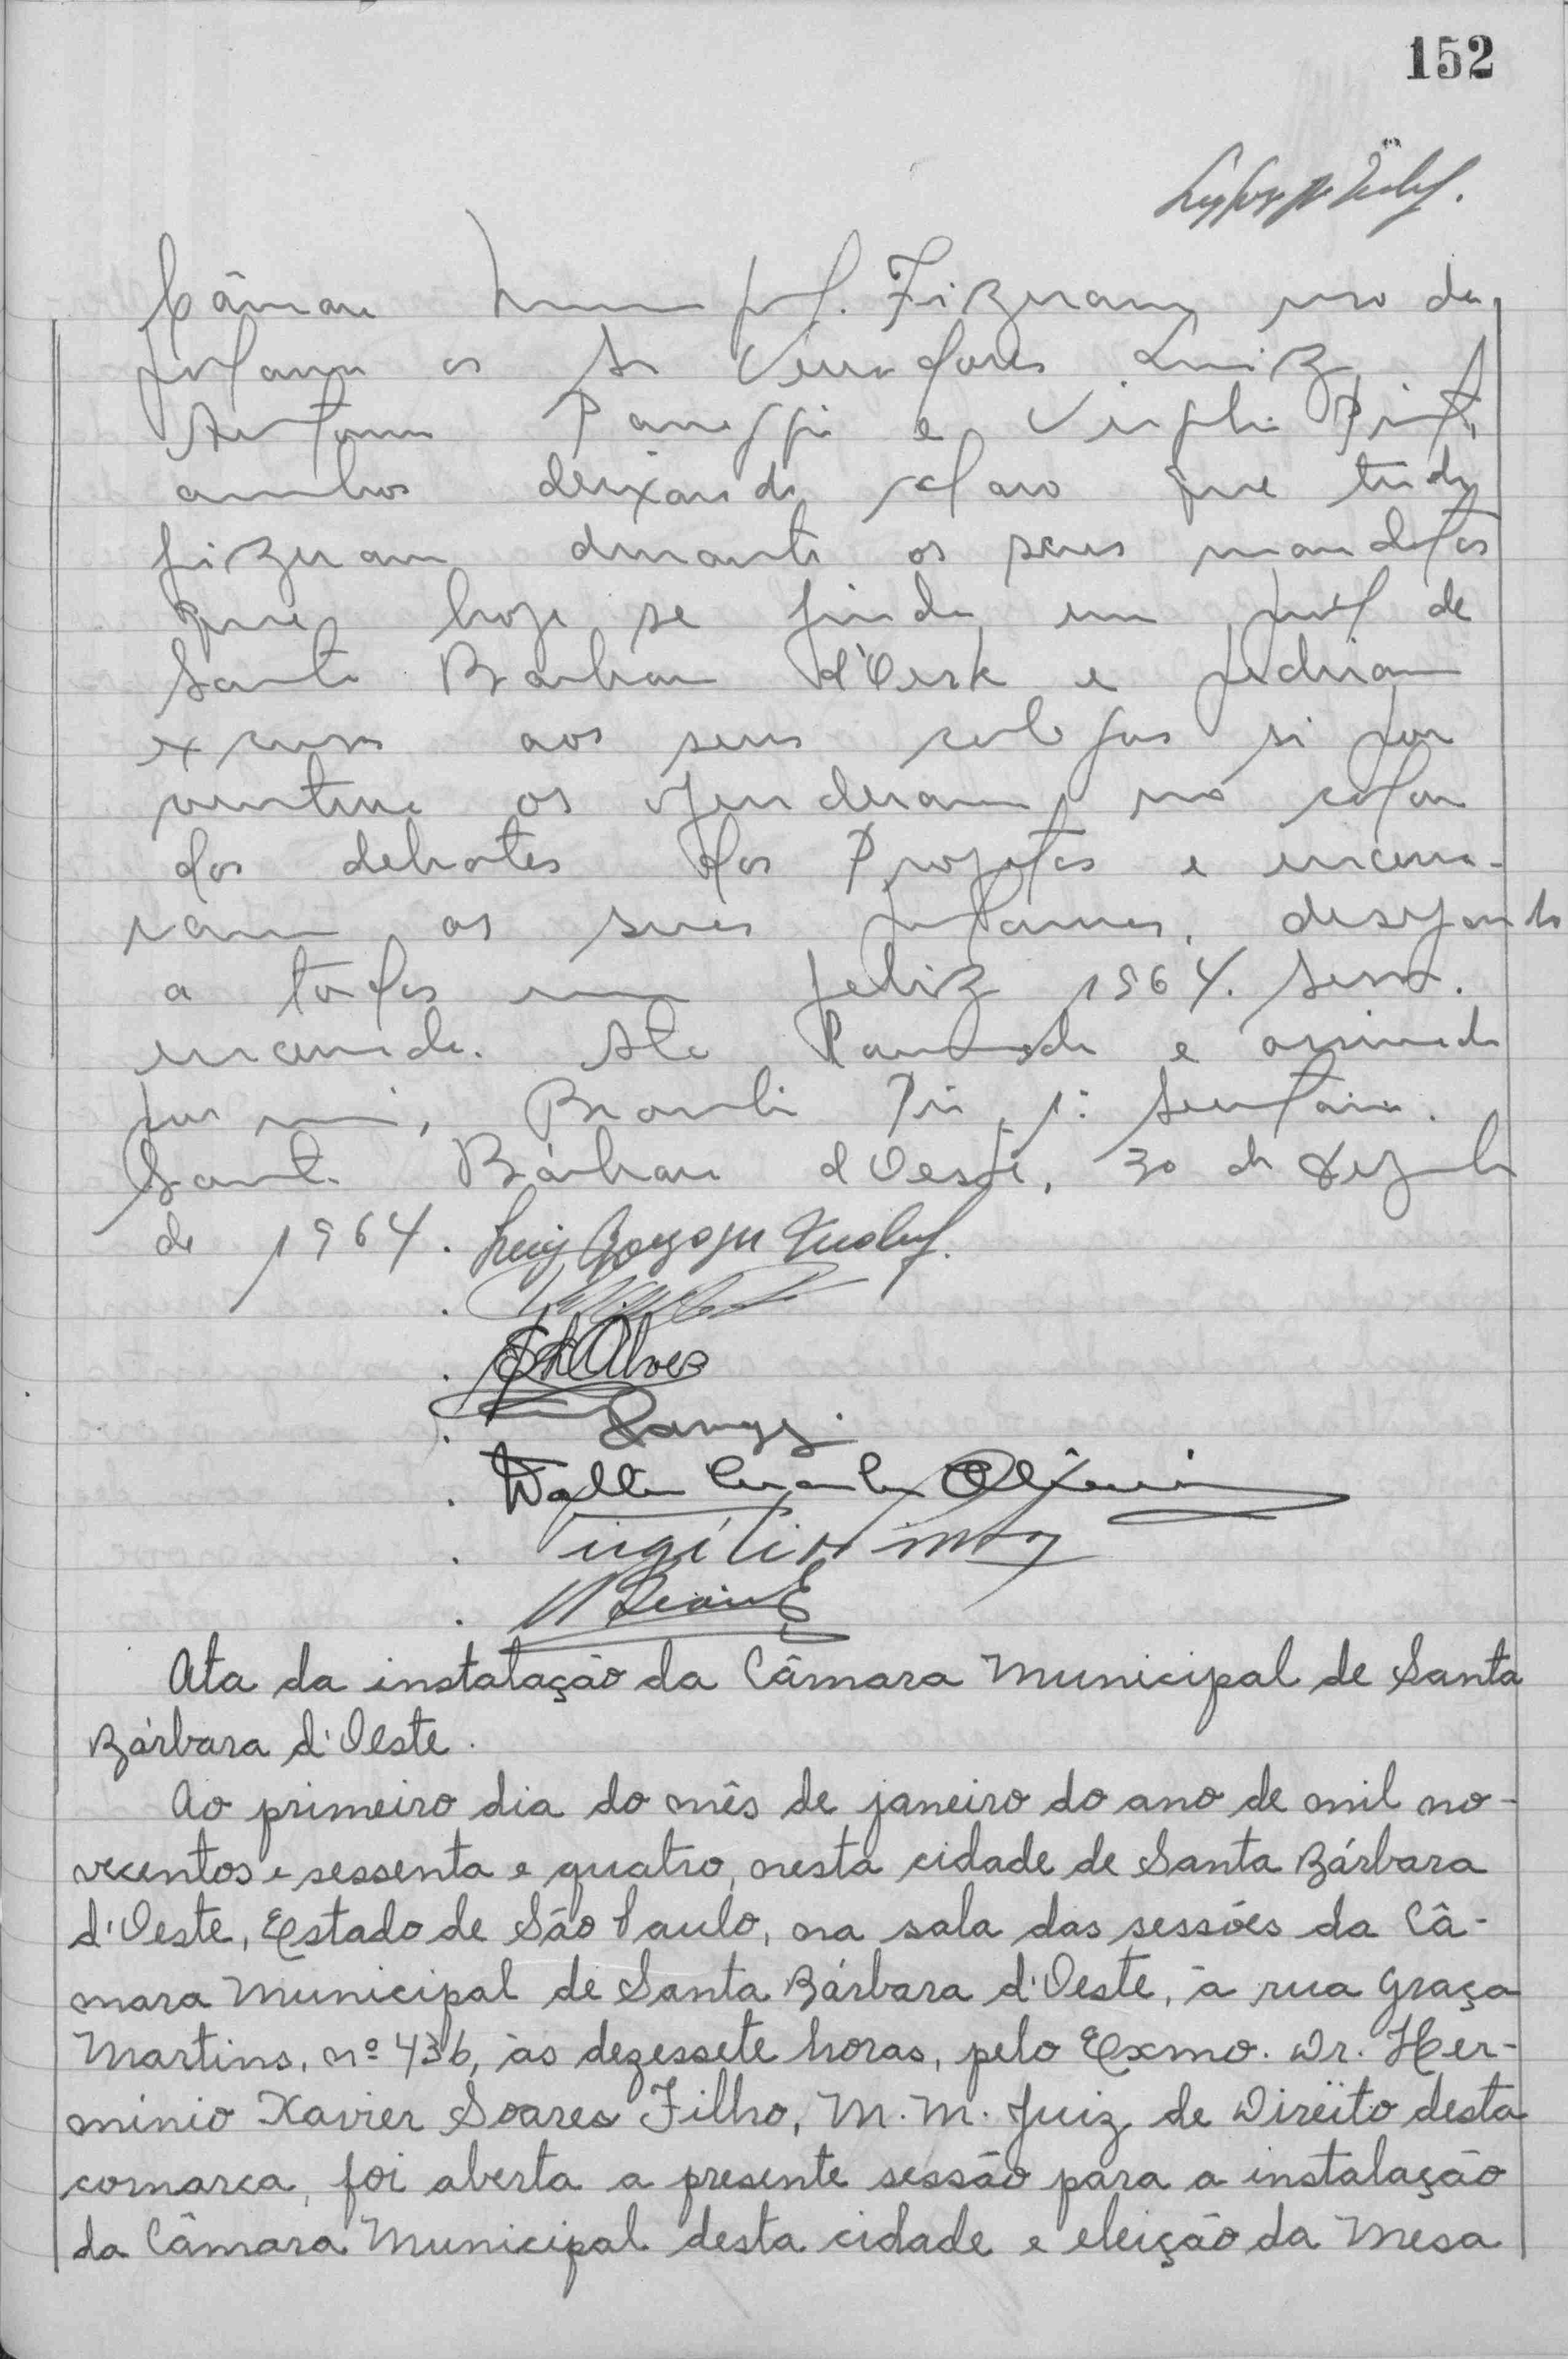 152
Câmara Municipal. Fizeram uso da
palavra os Srs Vereadores Luiz
Antonio Panaggi e Virgilio Pinto,
ambos deixando claro que tudo
fizeram durante os seus mandatos
que hoje se finda em prol de
Santa Barbara d'Oeste e pediram
excusas aos seus colegas si por
ventura os ofenderam no calor
dos debates dos Projetos e encerra-
ram as suas palavras, desejando
a todos um feliz 1964.
encerrada. Ata e assinada
por mim, 1º Secretario.
Santa Bárbara d'Oeste, 30 de Dezembro
de 1964. Luiz
Alves
Walter Oliveira
Virgilio Pinto
Ata da instalação da Câmara Municipal de Santa
Bárbara d'Oeste.
Ao primeiro dia do mês de janeiro do ano de mil no-
vecentos e sessenta e quatro, nesta cidade de Santa Bárbara
d'Oeste, Estado de São Paulo, na sala das sessões da Câ-
mara Municipal de Santa Bárbara d'Oeste, à rua Graça
Martins, nº 436, às dezessete horas, pelo Exmo. Dr. Her-
minio Xavier Soares Filho, M. M. Juiz de Direito desta
comarca, foi aberta a presente sessão para a instalação
da Câmara Municipal desta cidade e eleição da Mesa